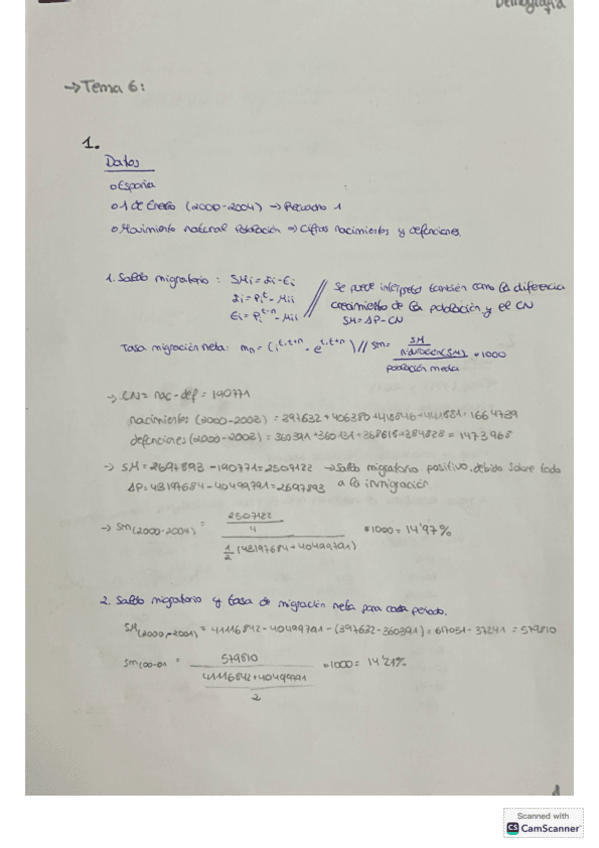 Demografía
→ Tema 6:
1.
Datos
o España
o 1 de Enero (2000-2004) → Recuadro 1
o Movimiento natural Población ⇒ Cifras nacimientos y defunciones.
1. Saldo migratorio: SMi = Ii - Ei // Se puede interpretar también como la diferencia
Ii = Pi^t - Mii // crecimiento de la población y el CN
Ei = Pi^t-n - Mii // SM = ΔP - CN
Tasa migración neta: mn = (i^t,t+n - e^t,t+n) // sm = SM / (SM) / Población media · 1000
→ CN = nac - def = 190771
nacimientos (2000-2003) = 397632 + 406380 + 418846 + 441881 = 1664739
defunciones (2000-2003) = 360391 + 360131 + 368618 + 384828 = 1473968
→ SM = 2697893 - 190771 = 2507122 → Saldo migratorio positivo, debido sobre todo
ΔP = 43197684 - 40499791 = 2697893 a la inmigración
→ sm(2000-2004) = 2507122 / 4 / 1/2 (43197684 + 40499791) · 1000 = 14'97%
2. Saldo migratorio y tasa de migración neta para cada periodo.
SM(2000-2001) = 41116842 - 40499791 - (397632 - 360391) = 617051 - 37241 = 579810
sm(00-01 = 579810 / 41116842 + 40499791 / 2 · 1000 = 14'21%
1
Scanned with
CS CamScanner